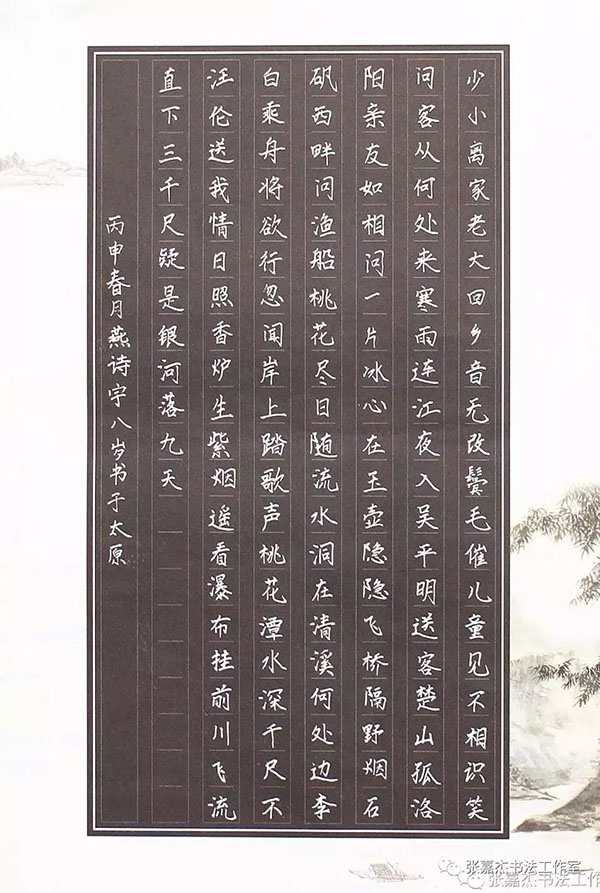 少小离家老大回乡音无改鬓毛催儿童见不相识笑
问客从何处来寒雨连江夜入吴平明送客楚山孤洛
阳亲友如相问一片冰心在玉壶隐隐飞桥隔野烟石
矾西畔问渔船桃花尽日随流水洞在清溪何处边李
白乘舟将欲行忽闻岸上踏歌声桃花潭水深千尺不
汪伦送我情日照香炉生紫烟遥看瀑布挂前川飞流
直下三千尺疑是银河落九天
丙申春月燕诗宇八岁书于太原
张嘉杰书法工作室
张嘉杰书法工作